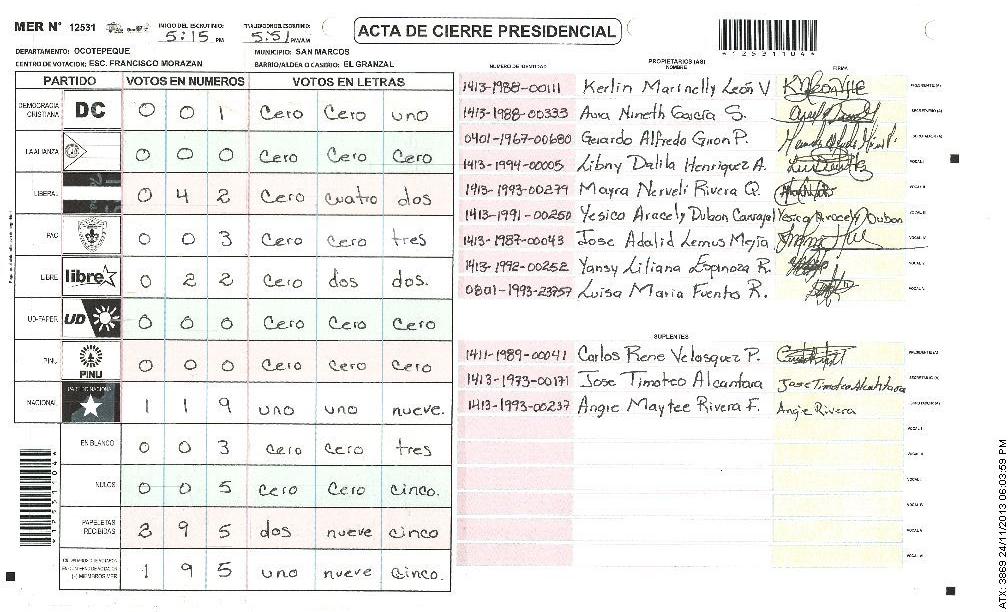 MER N° 12531 INICIO DEL ESCRUTINIO: FINALIZACION DEL ESCRUTINIO:
5:15 PM 5:51 PM/AM
ACTA DE CIERRE PRESIDENCIAL
DEPARTAMENTO: OCOTEPEQUE MUNICIPIO: SAN MARCOS
CENTRO DE VOTACIÓN: ESC. FRANCISCO MORAZAN BARRIO/ALDEA O CASERIO: EL GRANZAL
PARTIDO VOTOS EN NUMEROS VOTOS EN LETRAS
DEMOCRACIA CRISTIANA DC 0 0 1 Cero Cero uno
LA ALIANZA 0 0 0 Cero Cero Cero
LIBERAL 0 4 2 Cero cuatro dos
PAC 0 0 3 Cero Cero tres
LIBRE libre 0 2 2 Cero dos dos.
UD-FAPER UD 0 0 0 Cero Cero Cero
PINU PINU 0 0 0 Cero Cero Cero
NACIONAL 1 1 9 uno uno nueve.
EN BLANCO 0 0 3 Cero Cero tres
NULOS 0 0 5 Cero Cero cinco.
PAPELETAS RECIBIDAS 2 9 5 dos nueve cinco
(-) MIEMBROS MER 1 9 5 uno nueve cinco.
NUMERO DE IDENTIDAD PROPIETARIOS (AS) NOMBRE FIRMA
1413-1988-00111 Kerlin Marinelly León V
1413-1988-00333 Aura Nineth García S.
0401-1967-00680 Gerardo Alfredo Giron P.
1413-1994-00005 Libny Dalila Henriquez A.
1413-1993-00279 Mayra Nerveli Rivera Q.
1413-1991-00250 Yesica Aracely Dubon Yesica Aracely Dubon
1413-1987-00043 Jose Adalid Lemus Mejia
1413-1992-00252 Yansy Liliana Espinoza R.
0801-1993-23757 Luisa Maria Fuentes R.
SUPLENTES
1411-1989-00041 Carlos Rene Velasquez P.
1413-1973-00171 Jose Timoteo Alcantara Jose Timoteo Alcantara
1413-1993-00237 Angie Maytee Rivera F. Angie Rivera
ATX: 3869 24/11/2013 06:03:59 PM